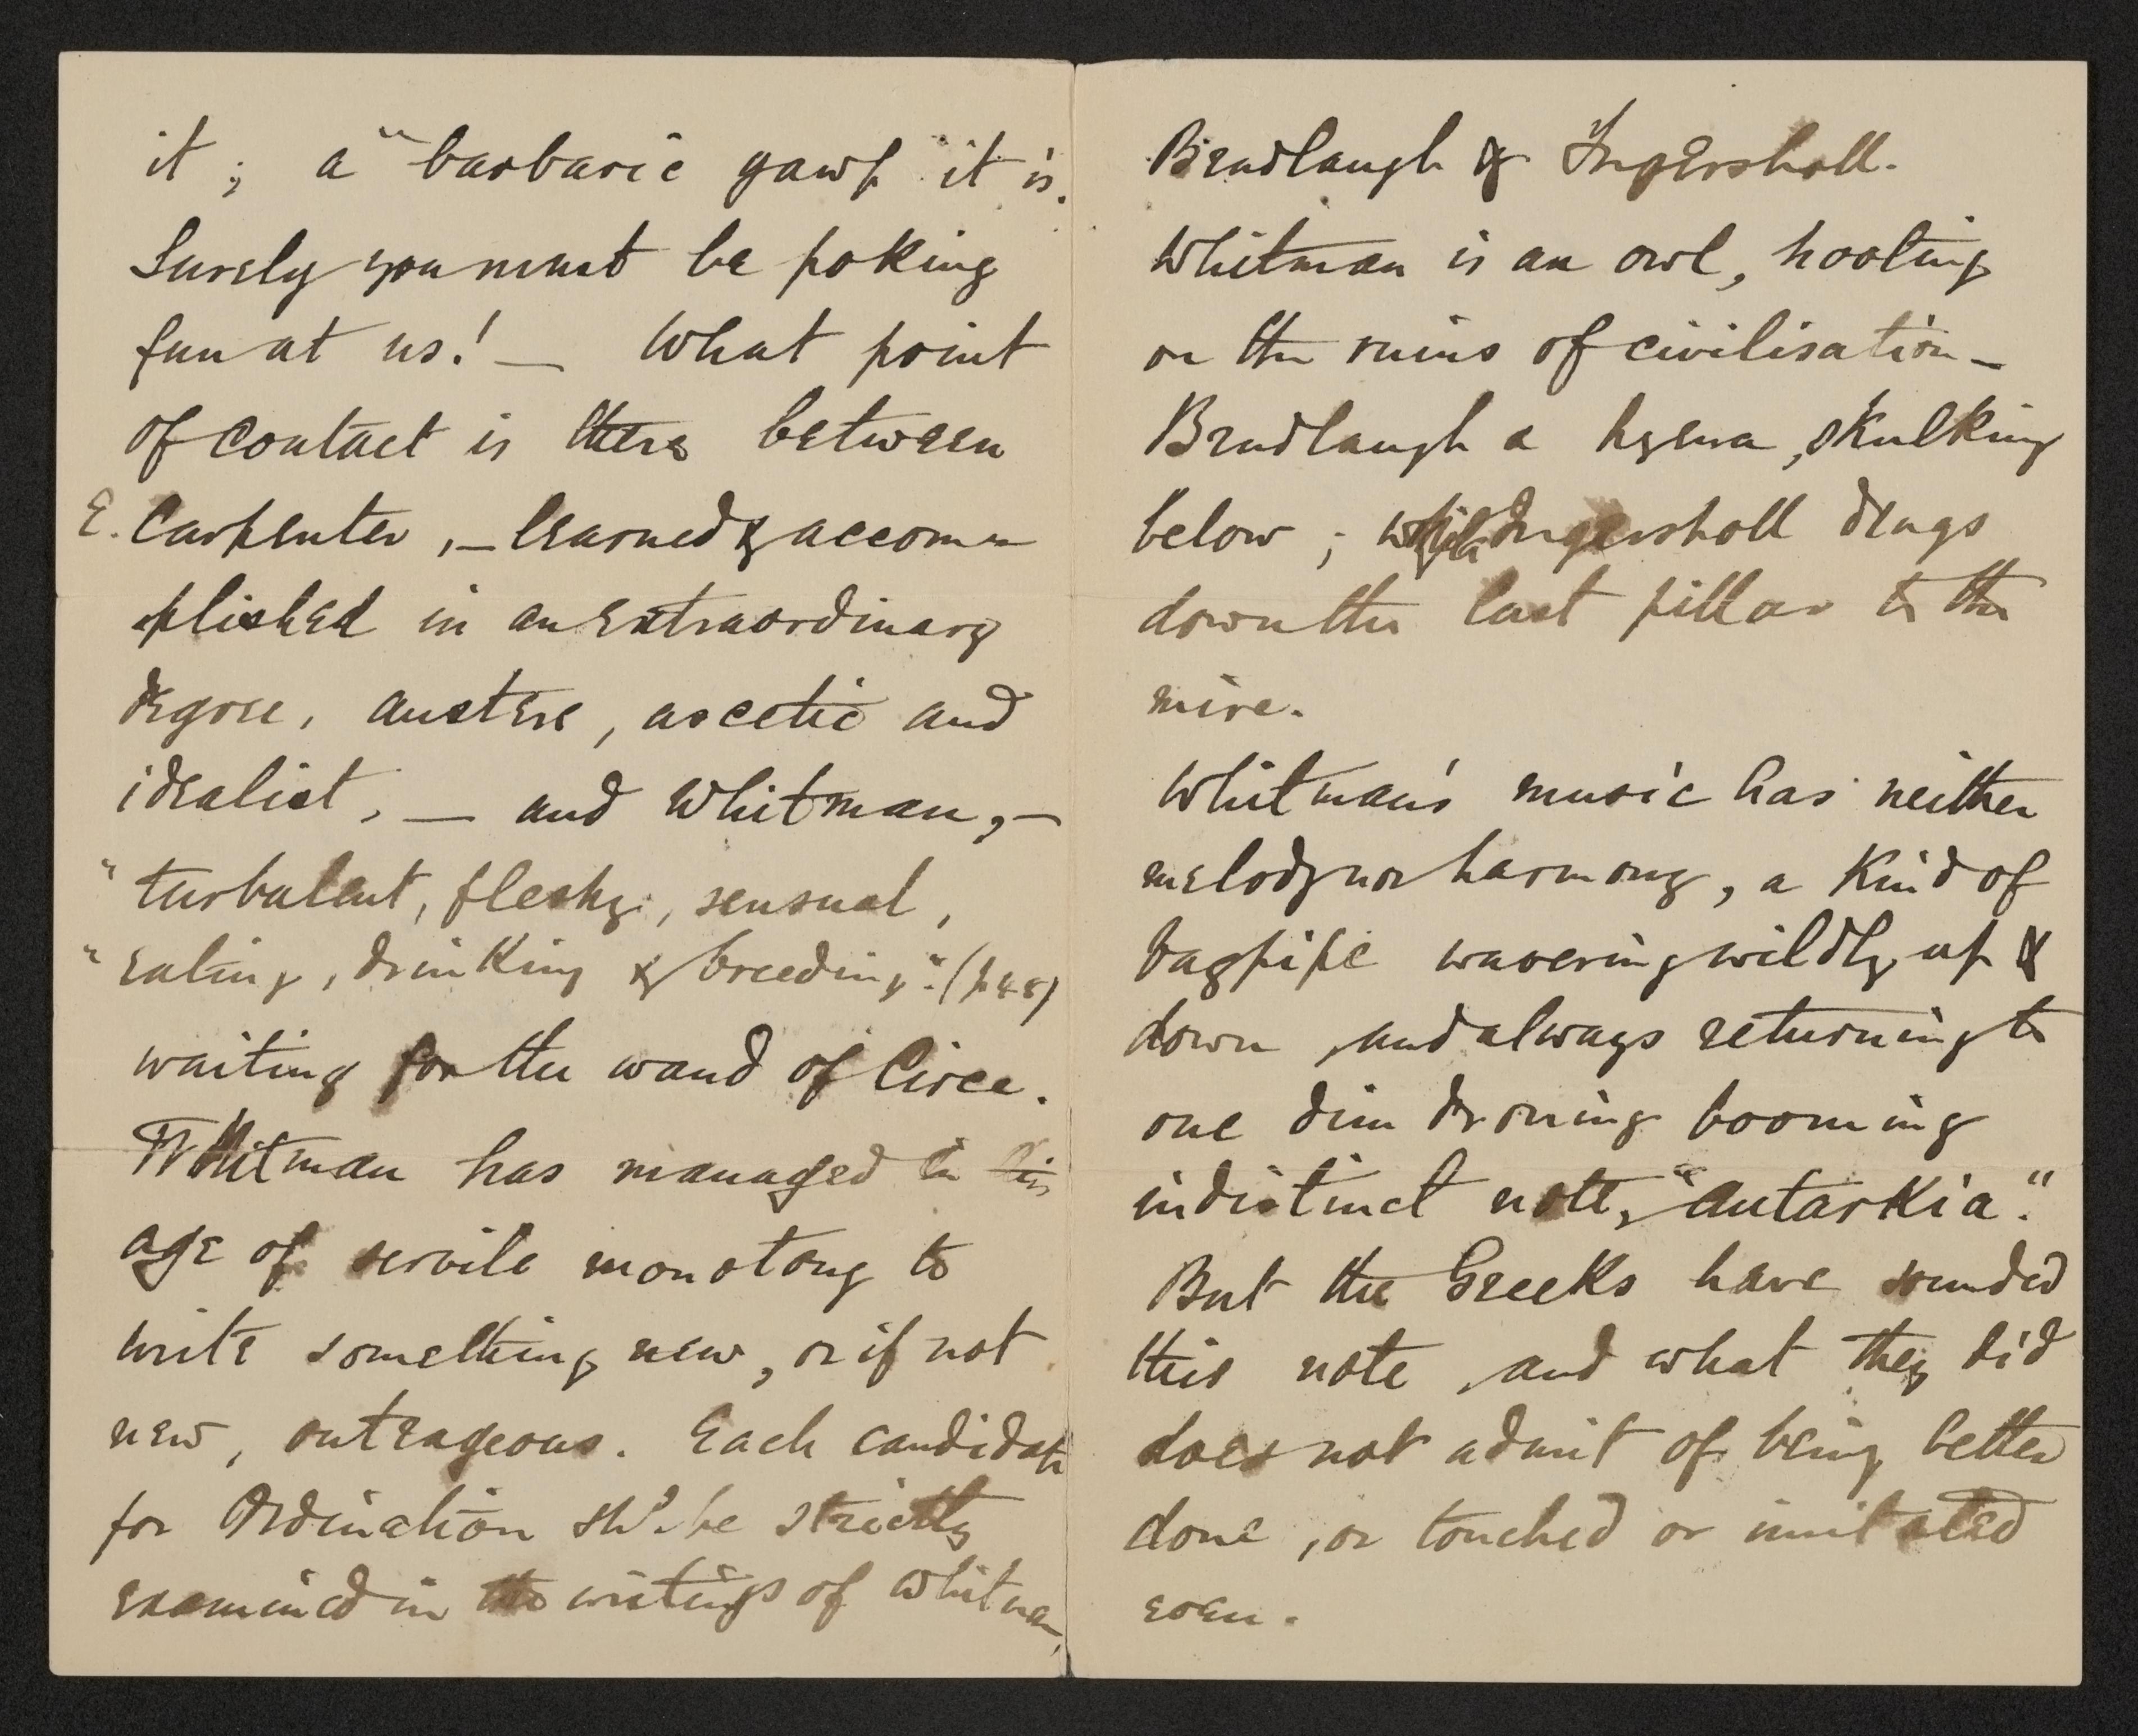 it; a "barbaric yawp" it is.
Surely you must be poking
fun at us! — What point
of contact is there between
E. Carpenter, — learned & accom-
plished in an extraordinary
degree, austere, ascetic and
idealist, — and Whitman, —
"turbulent, fleshy, sensual,
"eating, drinking & breeding". (p 48)
waiting for the wand of Circe.
Whitman has managed in this
age of servile monotony to
write something new, or if not
new, outrageous. Each candidate
for Ordination shd. be strictly
examined in the writings of Whitman,
Bradlaugh & Ingersholl.
Whitman is an owl, hooting
on the ruins of civilisation —
Bradlaugh a hyena, skulking
below; while Ingersholl drags
down the last pillar to the
mire.
Whitman's music has neither
melody nor harmony, a kind of
bagpipe wavering wildly up &
down, and always returning to
one dim droning booming
indistinct note, "Autarkia".
But the Greeks have sounded
this note, and what they did
does not admit of being better
done, or touched or imitated
even.